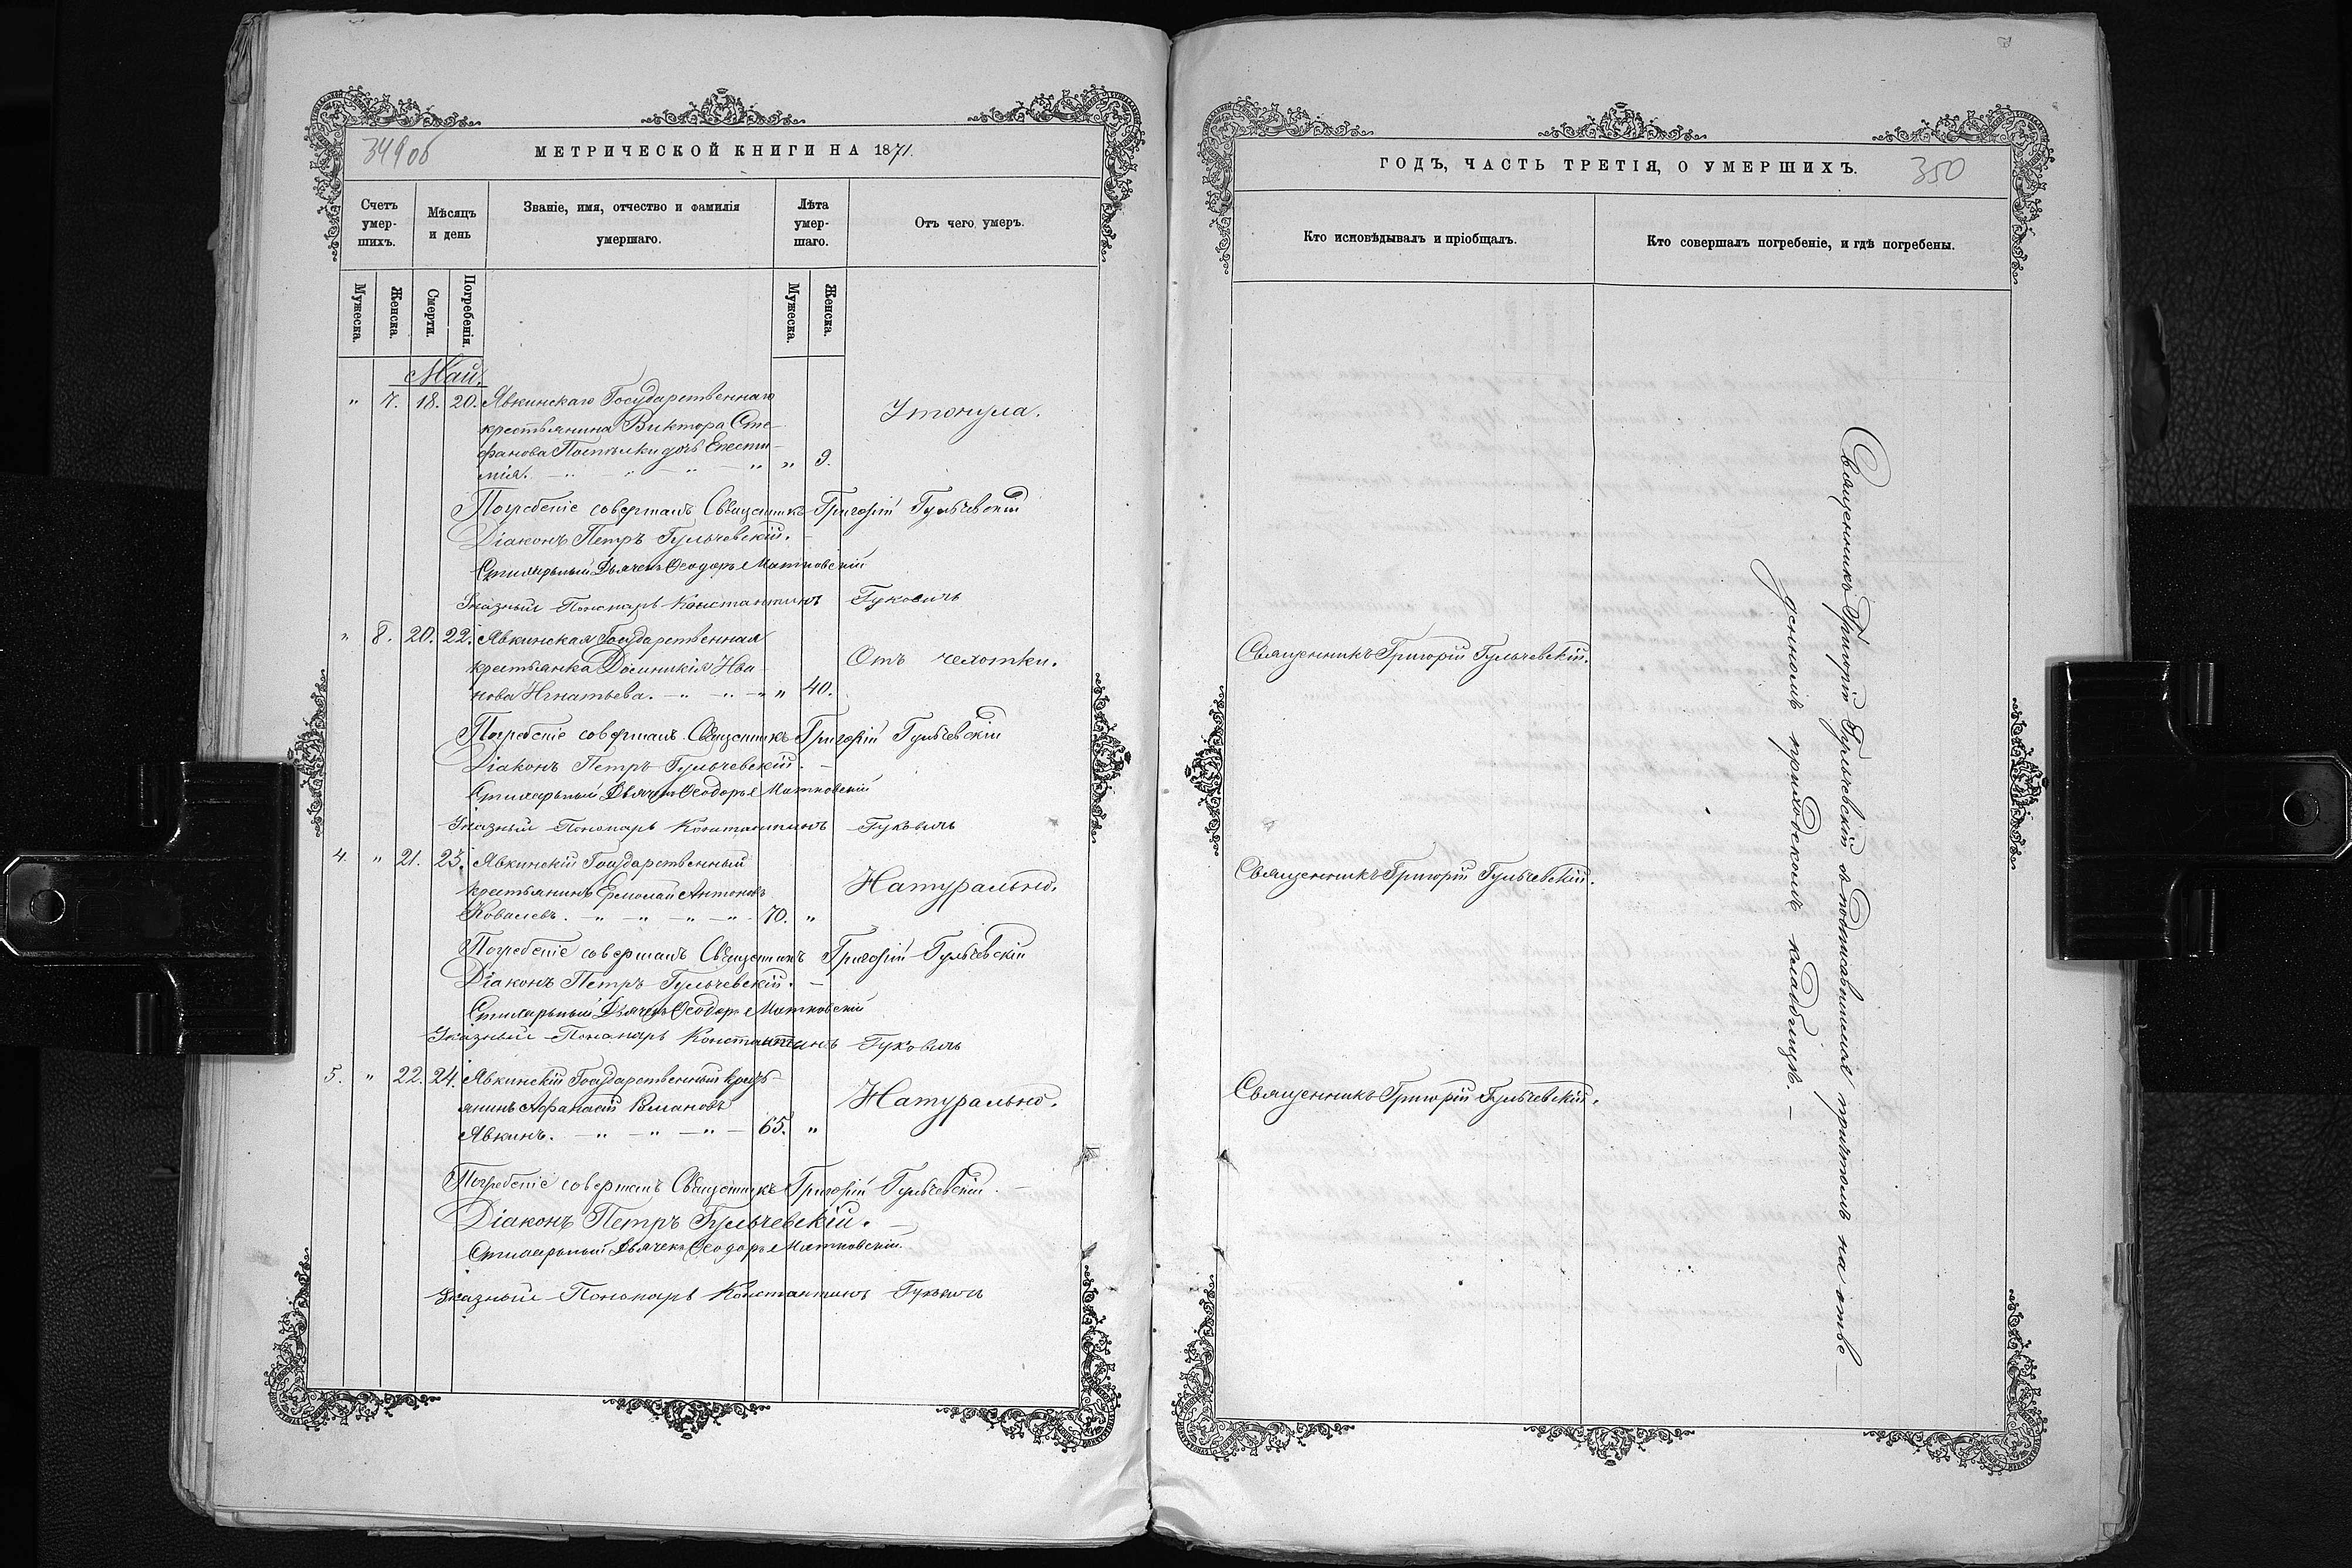 349 об
МЕТРИЧЕСКОЙ КНИГИ НА 1871.
Счетъ умер-шихъ.
Мѣсяцъ и день
Званіе, имя, отчество и фамилія умершаго.
Лѣта умер-шаго.
Отъ чего умеръ.
Мужеска.
Женска.
Смерти.
Погребенія.
Мужеска.
Женска.
Май.
" 7. 18. 20. Явкинскаго Государственнаго
крестьянина Виктора Сте-
фанова дочь
мія. " " 9.
Утонула.
Погребеніе совершалъ Священникъ Григорій Гульчевскій
Діаконъ Петръ Гульчевскій.
Стихарный Дьячекъ Ѳеодоръ Митковскій
Указный Пономарь Константинъ Гуковичъ
" 8. 20. 22. Явкинская Государственная
крестьянка Домникія Ива-
нова Игнатьева. " 40.
Отъ чехотки.
Погребеніе совершалъ Священникъ Григорій Гульчевскій
Діаконъ Петръ Гульчевскій.
Стихарный Дьячекъ Ѳеодоръ Митковскій
Указный Пономарь Константинъ Гуковичъ
4. " 21. 23. Явкинскій Государственный
крестьянинъ Ермолай Антоновъ
Ковалевъ. 70. "
Натурально.
Погребеніе совершалъ Священникъ Григорій Гульчевскій
Діаконъ Петръ Гульчевскій.
Стихарный Дьячекъ Ѳеодоръ Митковскій
Указный Пономарь Константинъ Гуковичъ
5. " 22. 24. Явкинскій Государственный
янинъ Афанасій
Явкинъ. 65. "
Натурально.
Погребеніе совершалъ Священникъ Григорій Гульчевскій.
Діаконъ Петръ Гульчевскій.
Стихарный Дьячекъ Ѳеодоръ Митковскій.
Указный Пономарь Константинъ Гуковичъ
ГОДЪ, ЧАСТЬ ТРЕТІЯ, О УМЕРШИХЪ.
350
Кто исповѣдывалъ и пріобщалъ.
Кто совершалъ погребеніе, и гдѣ погребены.
Священникъ Григорій Гульчевскій.
Священникъ Григорій Гульчевскій.
Священникъ Григорій Гульчевскій.
Священникъ Григорій Гульчевскій съ подписавшимся причтомъ на отве-
денномъ приходскомъ кладбищѣ.